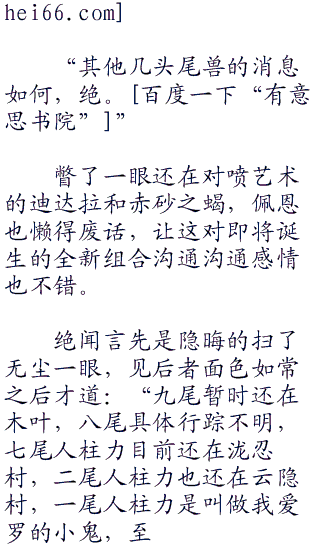 hei66.com]
“其他几头尾兽的消息
如何，绝。[百度一下“有意
思书院”]”
瞥了一眼还在对喷艺术
的迪达拉和赤砂之蝎，佩恩
也懒得废话，让这对即将诞
生的全新组合沟通沟通感情
也不错。
绝闻言先是隐晦的扫了
无尘一眼，见后者面色如常
之后才道：“九尾暂时还在
木叶，八尾具体行踪不明，
七尾人柱力目前还在泷忍
村，二尾人柱力也还在云隐
村，一尾人柱力是叫做我爱
罗的小鬼，至